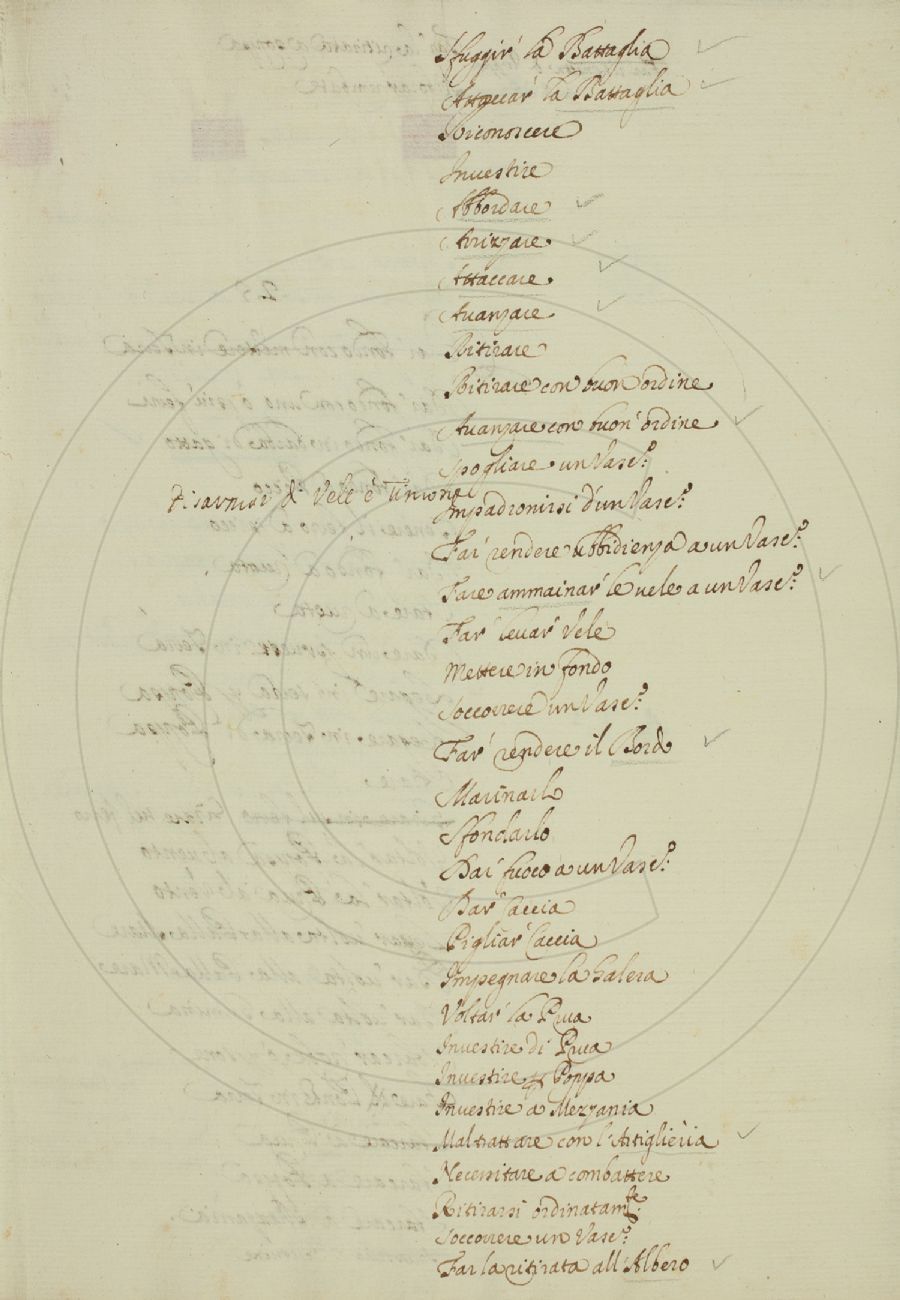 Sfuggir' la Battaglia
Attaccar' la Battaglia
Riconoscere
Investire
Abbordare
Arrizzare
Attaccare
Avanzare
Ritirare
Ritirare con buon ordine
Avanzare con buon' ordine
Spogliare un Vasc.º
Disarmesi di Vele è
Impadronirsi d'un Vasc.º
Far rendere ubbidienza a un Vasc.º
Fare ammainar' le vele a un Vasc.º
Far' levar' Vele
Mettere in fondo
Soccorrere d'un Vasc.º
Far' rendere il Bordo
Marinarlo
Sfondarlo
Dar fuoco a un Vasc.º
Dar' Caccia
Pigliar' Caccia
Impegnare la Galera
Voltar' la Prua
Investire di Prua
Investire p Poppa
Investire a Mezzania
Maltrattare con l'Artiglieria
Necessitare a combattere
Ritirarsi ordinatam.te
Soccorrere un Vasc.º
Far la ritirata all'Albero